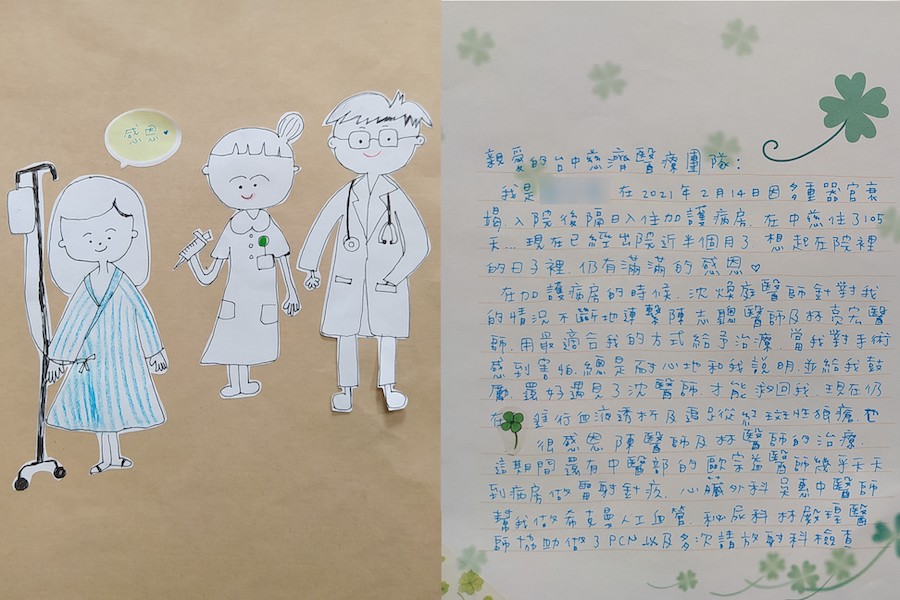 感恩
親愛的台中慈濟醫療團隊:
我是 在2021年2月14日因多重器官衰
竭,入院後隔日入住加護病房,在中慈住了105
天...現在已經出院近半個月了,想起在院裡
的日子裡,仍有滿滿的感恩♥
在加護病房的時候,沈煥庭醫師針對我
的情況不斷地連繫陳志聰醫師及林亮宏醫
師,用最適合我的方式給予治療,當我對手術
感到害怕,總是耐心地和我說明並給我鼓
勵,還好遇見了沈醫師才能救回我,現在仍
在 進行血液透析及追蹤紅斑性狼瘡,也
很感恩陳醫師及林醫師的治療.
這期間還有中醫部的歐宗益醫師幾乎天天
到病房做雷射針灸,心臟外科吳惠中醫師
幫我做希克曼人工血管,秘尿科林殿璂醫
師協助做了PCN以及多次請放射科檢查